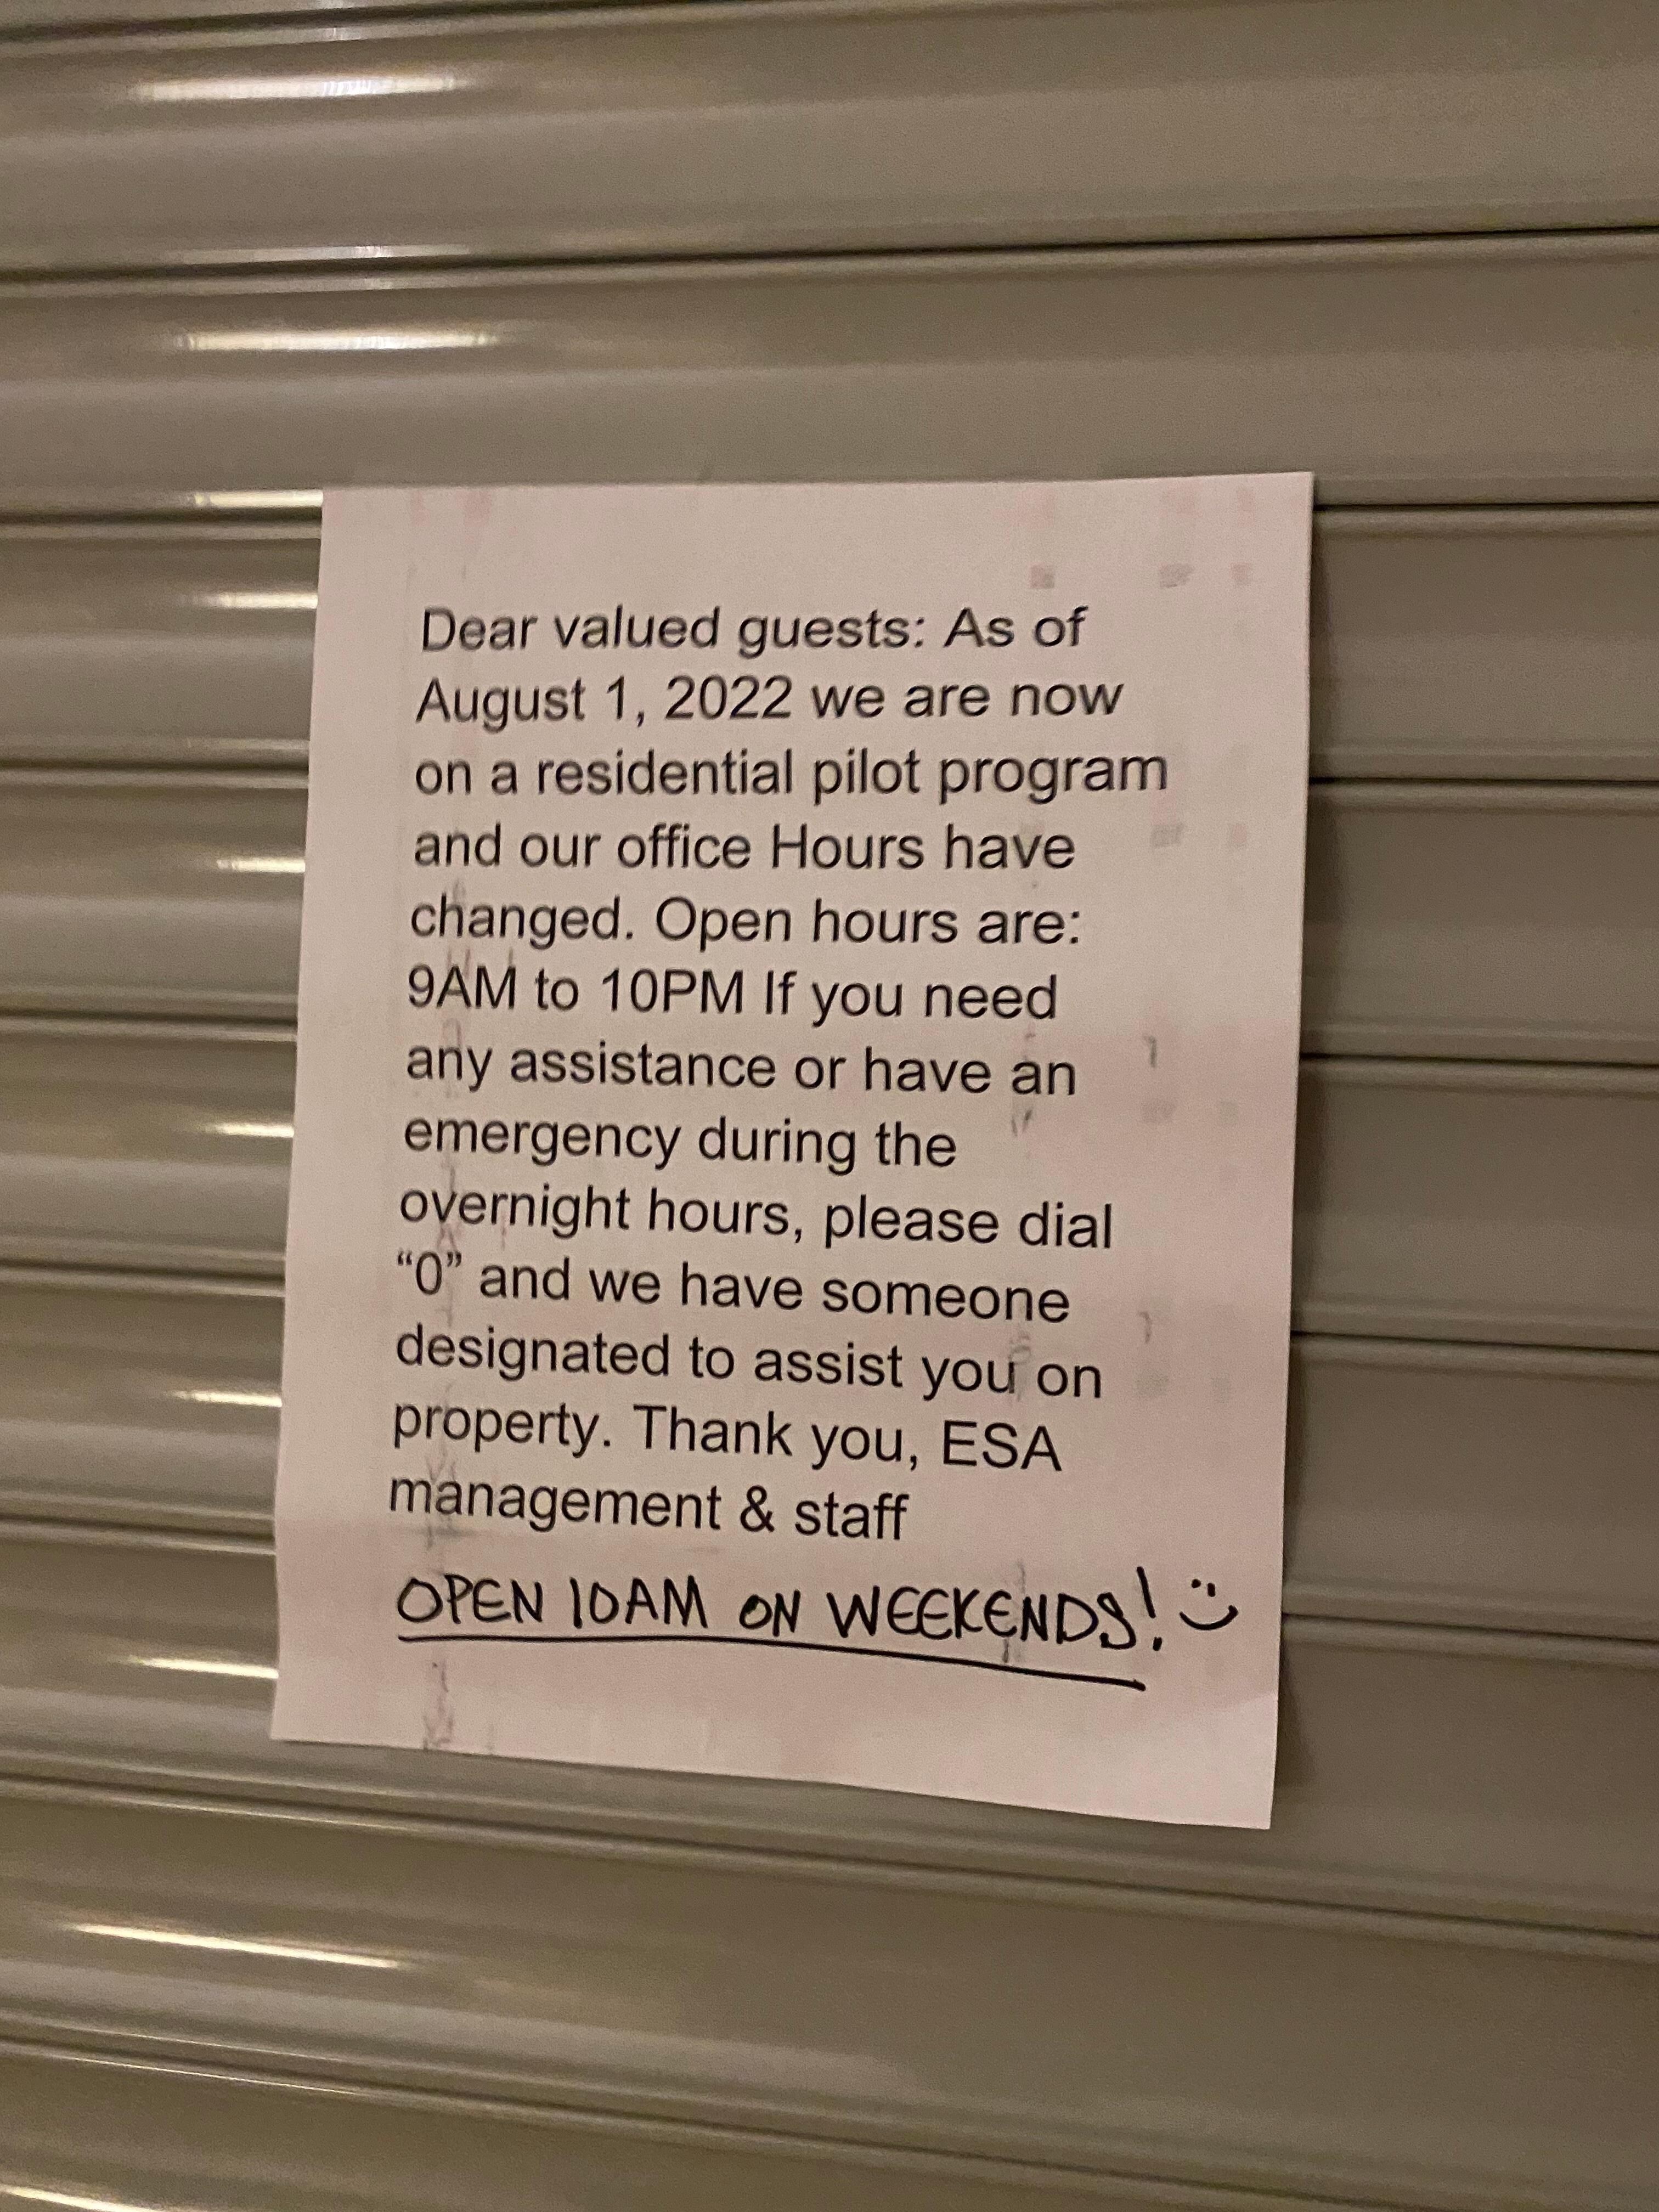 Dear valued guests: As of
August 1, 2022 we are now
on a residential pilot program
and our office Hours have
changed. Open hours are:
9AM to 10PM If you need
any assistance or have an
emergency during the
overnight hours, please dial
“0” and we have someone
designated to assist you on
property. Thank you, ESA
management & staff
OPEN 10AM ON WEEKENDS! :)